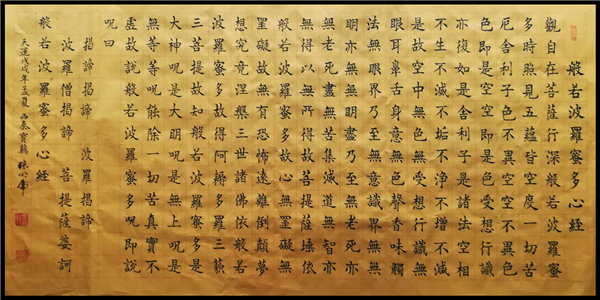 般若波羅蜜多心經
觀自在菩薩行深般若波羅蜜
多時照見五蘊皆空度一切苦
厄舍利子色不異空空不異色
色即是空空即是色受想行識
亦復如是舍利子是諸法空相
不生不滅不垢不淨不增不減
是故空中無色無受想行識無
眼耳鼻舌身意無色聲香味觸
法無眼界乃至無意識界無無
明亦無無明盡乃至無老死亦
無老死盡無苦集滅道無智亦
無得以無所得故菩提薩埵依
般若波羅蜜多故心無罣礙無
罣礙故無有恐怖遠離倒顛夢
想究竟涅槃三世諸佛依般若
波羅蜜多故得阿耨多羅三藐
三菩提故知般若波羅蜜多是
大神呪是大明呪是無上呪是
無等等呪能除一切苦真實不
虛故說般若波羅蜜多呪即說
呪曰
揭諦揭諦 波羅揭諦
波羅僧揭諦 菩提薩婆訶
般若波羅蜜多心經
天運戊戌年孟夏 西秦寶雞